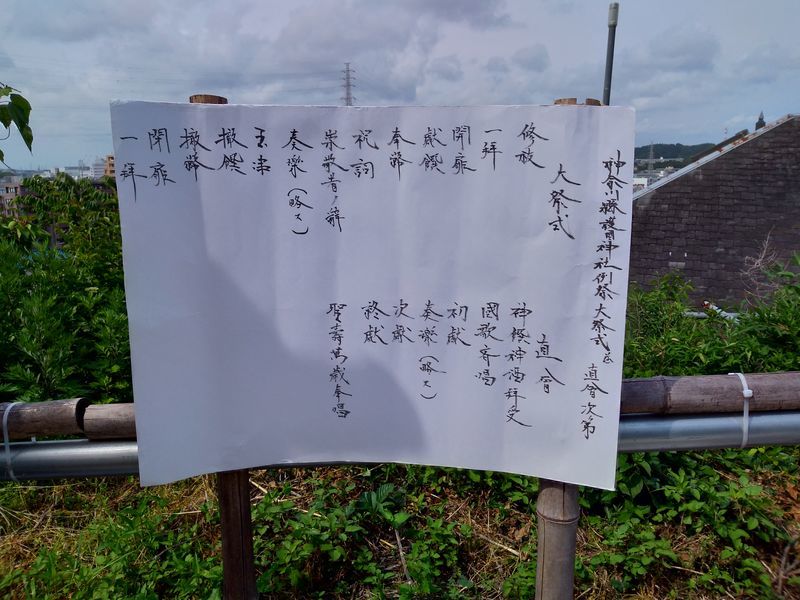 神奈川縣護國神社例祭大祭式並直會次第
大祭式
修祓
一拜
開扉
献饌
奉幣
祝詞
崇敬者ノ辞
奏楽(略ス)
玉串
撤饌
撤幣
閉扉
一拜
直會
神饌神酒拜受
國歌斉唱
初献
奏楽(略ス)
次献
終献
聖壽萬歳奉唱